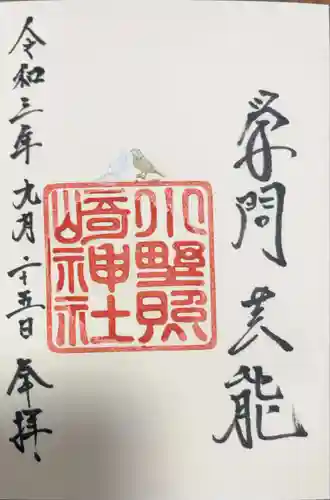 学問芸能
小野照
崎神社
令和三年九月二十五日 奉拝